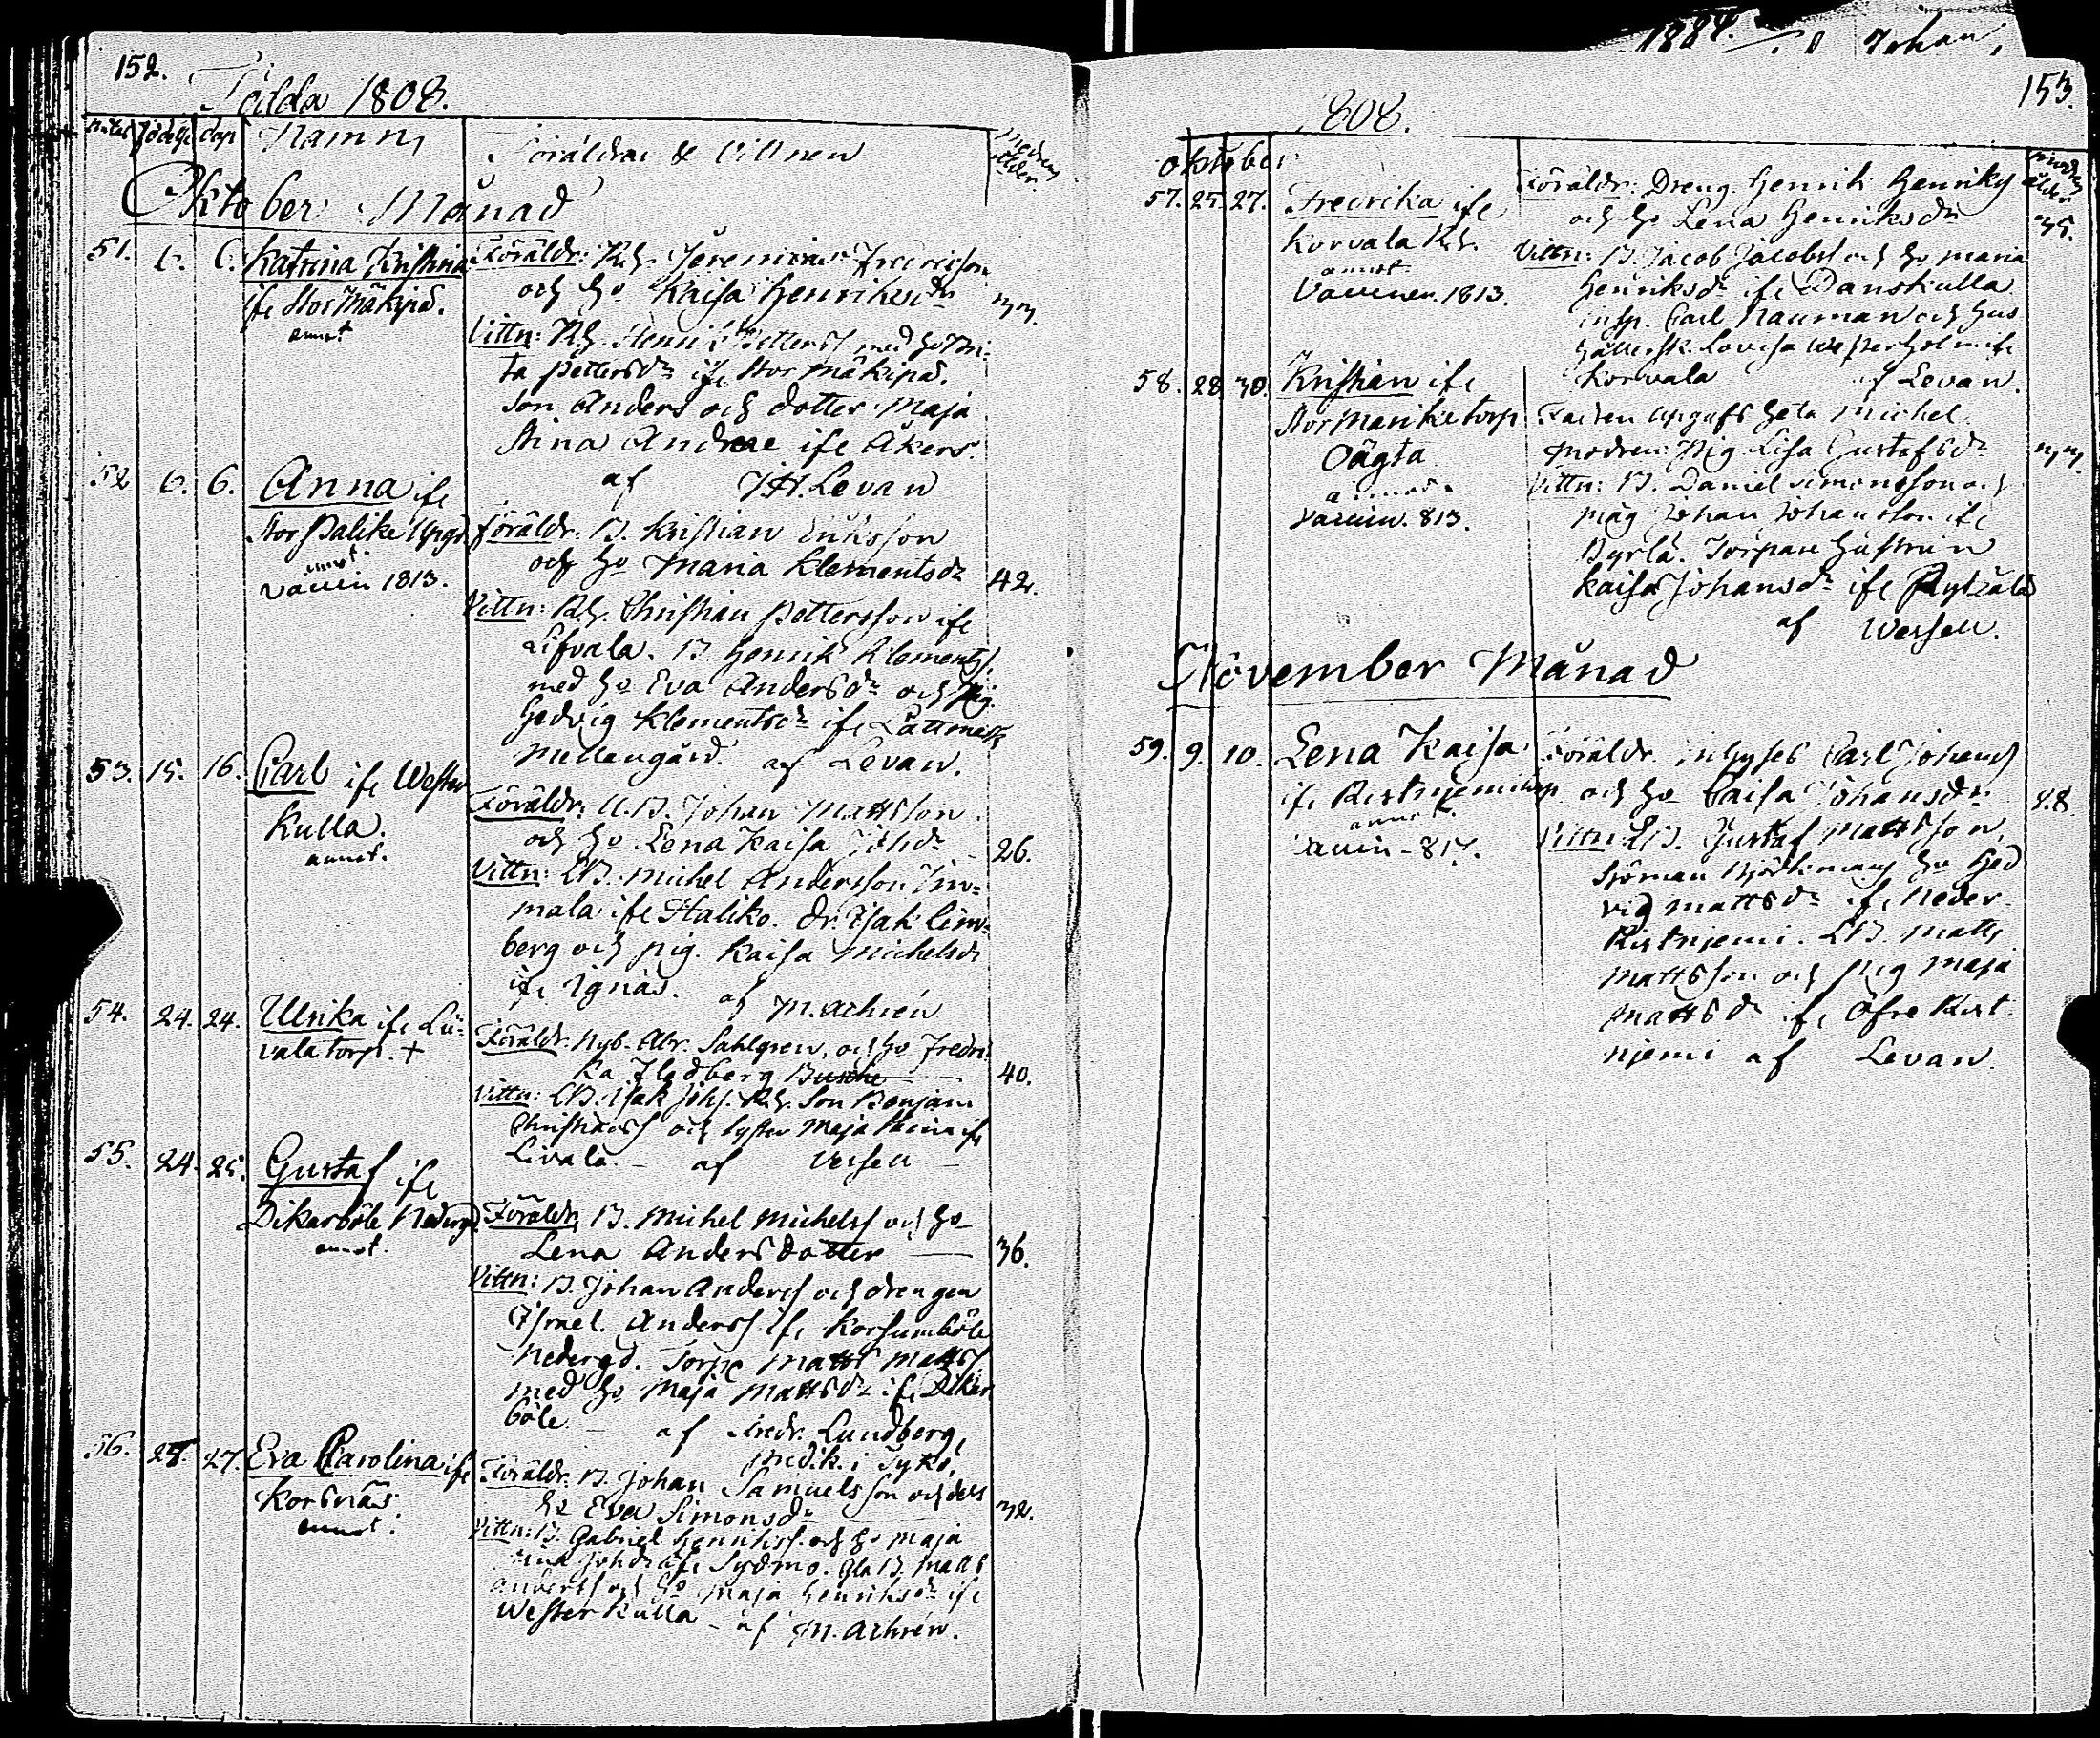 152.
Födda 1808.
Föd.dag dop. Namn Föräldrar & Vittnen modrens ålder.
Oktober Månad
51. 6. 6. Katrina Kristina
ifr Stor Mäkipä.
annot
Föräldr: Rh. Jeremias Fredricsson
och ho Kaisa Henriksdr 33.
Vittn: Rh. Henrik Petterss med ho Bri-
ta Pettersdr ifr Stor Mäkipä.
Son Anders och dotter Maja
Stina Andrae ifr Åkers.
af J.H. Levan
52 6. 6. Anna ifr
Stor Palike Uppgd.
annot.
Vaccin 1813.
Föräldr: B. Kristian Eriksson
och ho Maria Klementsdr 42.
Vittn: Rh. Christian Pettersson ifr
Lifvala. B. Henrik Klementss.
med ho Eva Andersdr och Pig.
Hedvig Klementsdr ifr
Mellangård. af Levan.
53. 15. 16. Carl ifr Wester
Kulla.
annot.
Föräldr: B. Johan Mattsson
och ho Lena Kaisa Johdr 26.
Vittn: LB. Michel Andersson Im-
mala ifr Haliko. Dr. Isak Lim-
berg och pig. Kaisa Michelsdr
ifr Ignäs. af M. Achrén
54. 24. 24. Ulrika ifr Lii-
vala torp. +
Föräldr. Nyb. Abr. Sahlgren, och ho Fredri-
ka Flodberg 40.
Vittn: LB. Isak Johs. Rh. Son Benjam
Christianss och syster Maja Stina ifr
Livala. - af Wessell -
55. 24. 25. Gustaf ifr
Dikarböle Nedergd.
annot.
Föräldr. B. Michel Michelss och ho
Lena Andersdotter 36.
Vittn: B. Johan Anderss och drengen
Israel. Anderss. ifr Korsumböle
Nedergd. Torpe Matts Mattss.
med ho Maja Mattsdr ifr Diker
böle af Fredr. Lundberg,
Predik. i Tyko,
56. 27. 27. Eva Carolina ifr
Korsnäs.
annot.
Föräldr. B. Johan Samuelsson och dess
ho Eva Simonsdr 32.
Vittn: B. Gabriel Henrikss. och ho Maja
Stina Johdr ifr Sydmo. Gla B. Matts
Anderss och ho Maja Henriksdr ifr
Westerkulla - af M. Achrén.
1884. Johan,
153.
1808.
Oktober modrens ålder
57. 25. 27. Fredrika ifr
Korvala Rh.
annot
Vaccinen. 1813.
Föräldr: Dreng. Henrik Henrikss
och ho Lena Henriksdr 35.
Vittn: B. Jacob Jacobss och ho Maria
Henriksdr ifr Danskulla
insp. Carl Nauman och hus
hållersk. Lovisa Westerholm ifr
Korvala af Levan.
58. 28. 30. Kristian ifr
Stor Manike torp
Oägta
annot.
Vaccin. 813.
Fadren uppgifs heta Michel.
Modren: Pig Lisa Gustafsdr 33.
Vittn: B. Daniel Simonsson och
måg Johan Johansson ifr
Pyrlä. Torpare hustrun
Kaisa Johansdr ifr
af Wessell.
November Månad
59. 9. 10. Lena Kaisa
ifr Ristniemi torp
annot.
Vaccin - 817.
Föräldr. Inhyses Carl Johanss
och ho Caisa Johansdr 28.
Vittn: LB. Gustaf Mattsson,
Sjöman Björkmans ho Hed
vig Mattsdr ifr Neder-
Ristnjemi. LB. Matts
Mattsson och Pig Maja
Mattsdr ifr Öfre Rist-
njemi af Levan.